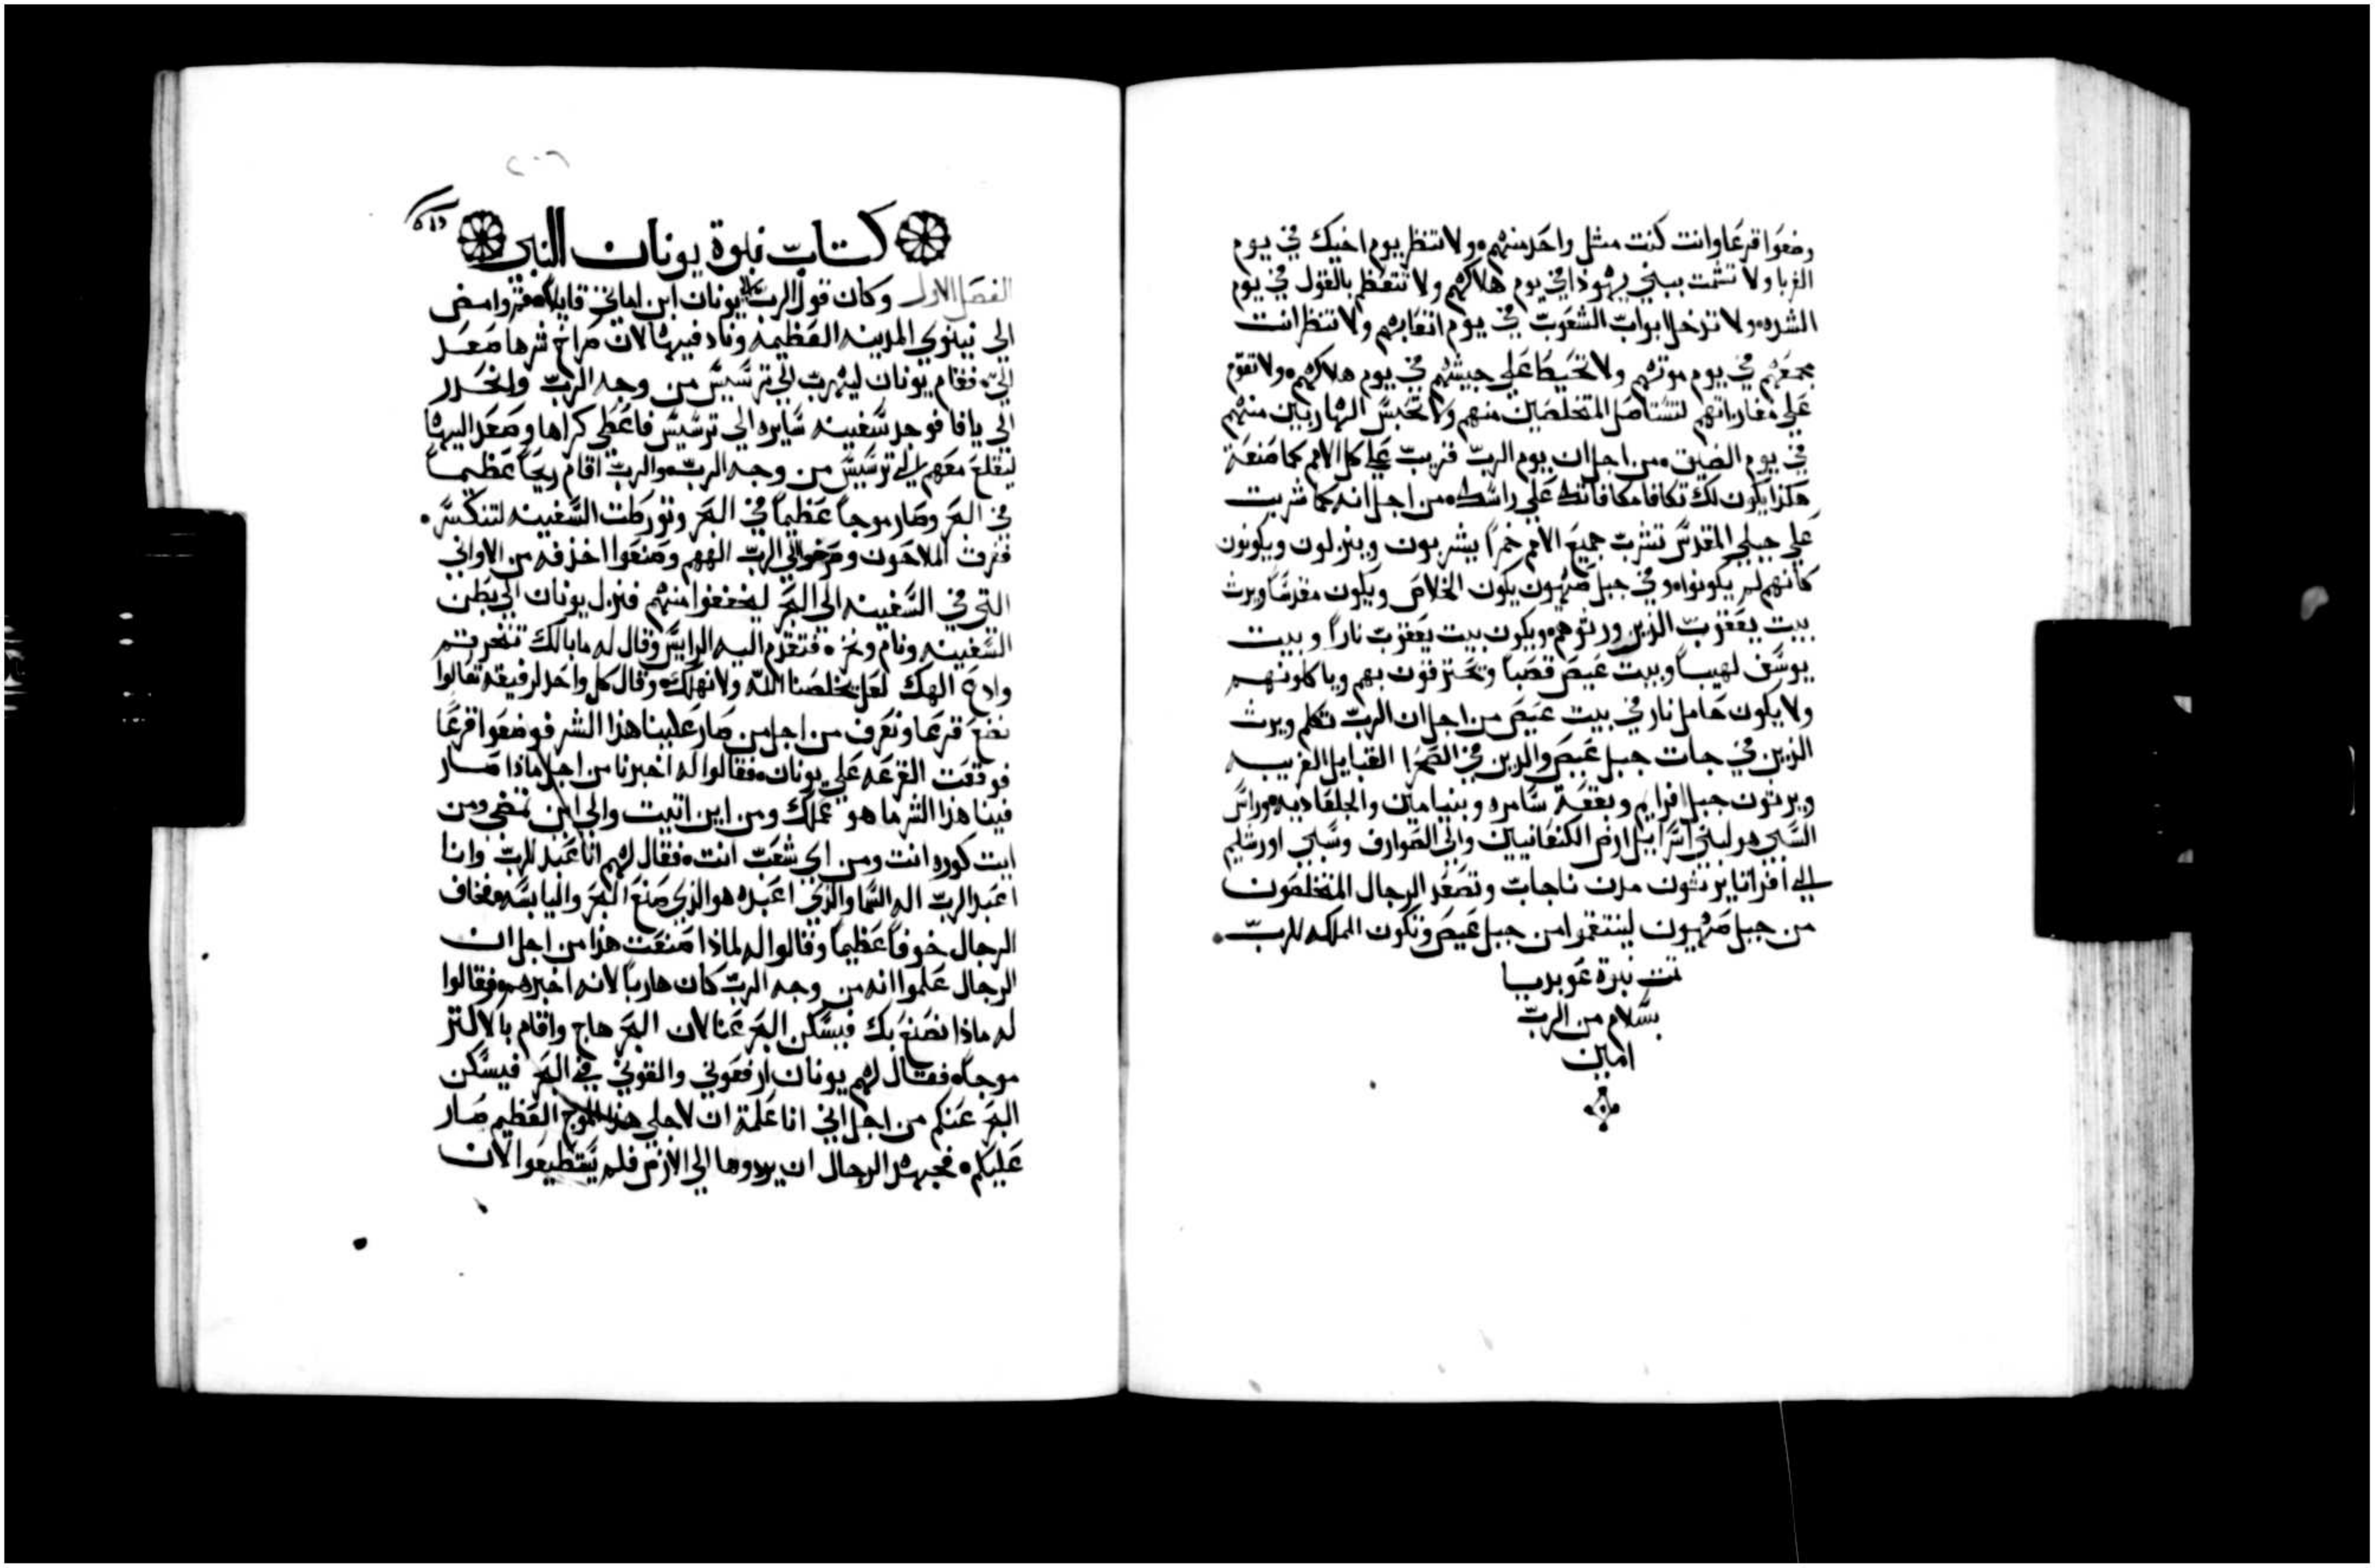 وضعوا قرعا وانت كنت مثل واحد منهم ولا تنظر يوم اخيك في يوم
الغربا ولا تشمت ببني يهوذا في يوم هلاكهم ولا تتعظم بالقول في يوم
الشده ولا تدخل ابواب الشعوب في يوم اتعابهم ولا تنظر انت
مجمعهم في يوم موتهم ولا تحيط علي جيشهم في يوم هلاكهم ولا تقوم
علي مغاراتهم لتستاصل المتخلصين منهم ولا تحبس الهاربين منهم
في يوم الضيق من اجل ان يوم الرب قريب علي كل الامم كما صنعة
هكذا يكون لك تكافا مكافاتك علي راسك من اجل انه كما شربت
علي جبلي المقدس تشرب جميع الامم خمرا يشربون وينزلون ويكونون
كانهم لم يكونوا وفي جبل صهيون يكون الخلاص ويكون مقدسا ويرث
بيت يعقوب الذين ورثوهم ويكون بيت يعقوب نارا وبيت
يوسف لهيبا وبيت عيص قصبا وتحترقون بهم وياكلونهم
ولا يكون حامل نار في بيت عيص من اجل ان الرب تكلم ويرث
الذين في جات جبل عيص والذين في الصحرا القبايل الغريبه
ويرثون جبل افرايم وبقعة سامره وبنيامين والجلعاديه وراس
السبي هو لبني اسراييل ارض الكنعانيين والي الصوارف وسبي اورشليم
الي افراتا يرثون مدن ناجات وتصعد الرجال المتخلصون
من جبل صهيون لينتقموا من جبل عيص وتكون المملكه للرب
تمت نبوة عوبديا
بسلام من الرب
امين
٢٠٦
كتاب نبوة يونان النبي
الفصل الاول وكان قول الرب الي يونان ابن اماتي قايلا قم وامض
الي نينوي المدينه العظيمه وناد فيها لان صراخ شرها صعد
الي فقام يونان ليهرب الي ترسيس من وجه الرب وانحدر
الي يافا فوجد سفينه سايره الي ترسيس فاعطي كراها وصعد اليها
ليقلع معهم الي ترسيس من وجه الرب والرب اقام ريحا عظيما
في البحر وصار موجا عظيما في البحر وتورطت السفينه لتنكسر
ففرق الملاحون وصرخوا الي الرب الههم وصنعوا اخذفه من الاواني
التي في السفينه الي البحر ليخففوا منهم فنزل يونان الي بطن
السفينه ونام ونخر فتقدم اليه الراييس وقال له ما بالك تنخر قم
وادع الهك لعل يخلصنا الله ولا نهلك وقال كل واحد لرفيقه تعالوا
نضع قرعا ونعرف من اجل من صار علينا هذا الشر فوضعوا قرعا
فوقعت القرعه علي يونان فقالوا له اخبرنا من اجل ماذا صار
فينا هذا الشر ما هو عملك ومن اين اتيت والي اين تمضي ومن
ايت كوره انت ومن اي شعب انت فقال لهم انا عبد للرب وانا
اعبد الرب اله السما والذي اعبده هو الذي صنع البحر واليابسه فخاف
الرجال خوفا عظيما وقالوا له لماذا صنعت هذا من اجل ان
الرجال علموا انه من وجه الرب كان هاربا لانه اخبرهم فقالوا
له ماذا نصنع بك فيسكن البحر عنا لان البحر هاج واقام بالاكثر
موجا فقال لهم يونان ارفعوني والقوني في البحر فيسكن
البحر عنكم من اجل اني انا علمة ان لاجلي هذا الموج العظيم صار
عليكم فجهد الرجال ان يردوها الي الارض فلم يستطيعوا لان